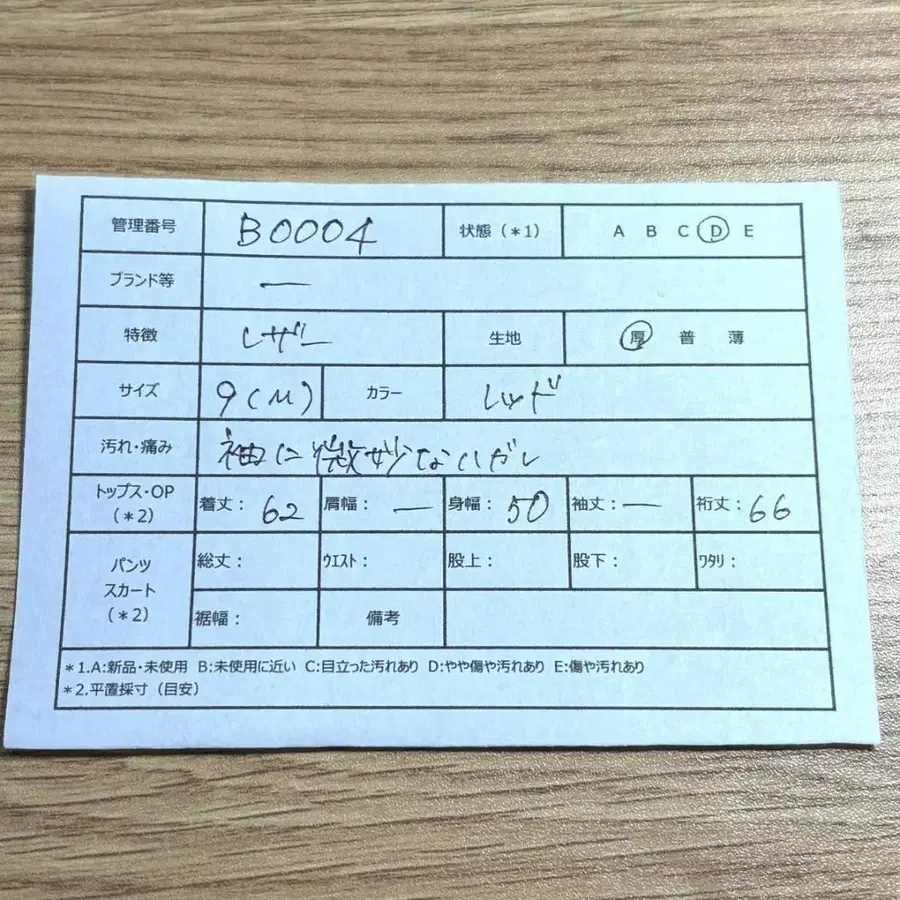 管理番号 B0004 状態（*1） A B C D E
ブランド等 ー
特徴 レザー 生地 厚 普 薄
サイズ 9(M) カラー レッド
汚れ・痛み 袖に微妙なハガレ
トップス・OP（*2） 着丈：62 肩幅：ー 身幅：50 袖丈：ー 裄丈：66
パンツ スカート（*2） 総丈： ｳｴｽﾄ： 股上： 股下： ﾜﾀﾘ：
裾幅： 備考
*1.A:新品・未使用 B:未使用に近い C:目立った汚れあり D:やや傷や汚れあり E:傷や汚れあり
*2.平置採寸（目安）